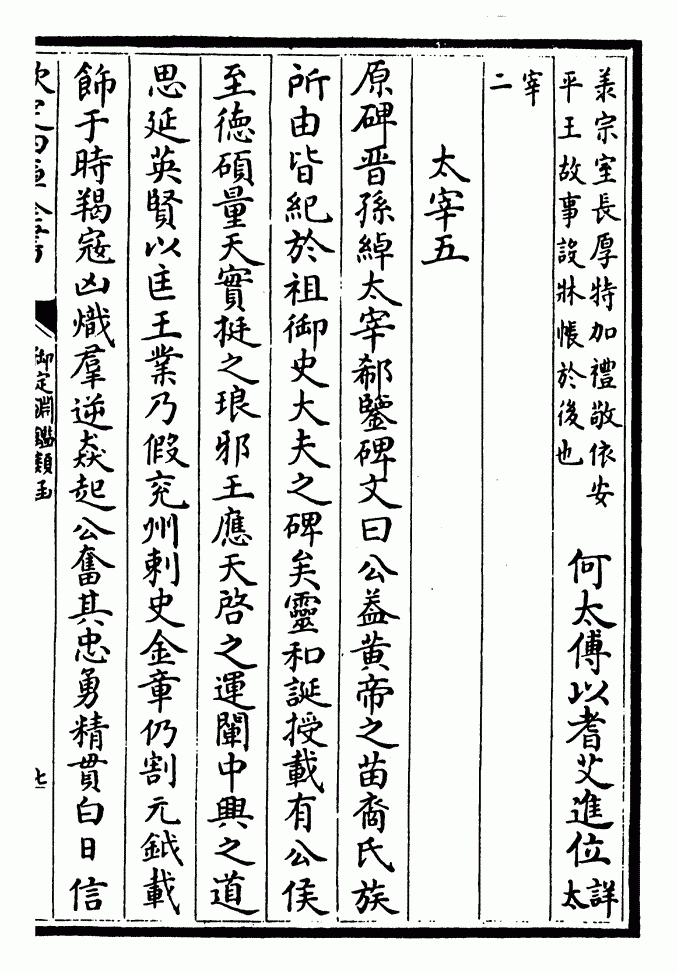 羕宗室長厚特加禮敬依安
平王故事設牀帳於後也
何太傅以耆艾進位詳
太
宰
二
太宰五
原碑晉孫綽太宰郗鑒碑文曰公葢黄帝之苗裔氏族
所由皆紀於祖御史大夫之碑矣靈和誕授載有公侯
至徳碩量天實挺之琅邪王應天啓之運闡中興之道
思延英賢以匡王業乃假兖州刺史金章仍割元鉞載
飾于時羯寇凶熾羣逆焱起公奮其忠勇精貫白日信
欽定四庫全書
御定淵鑑類函
七